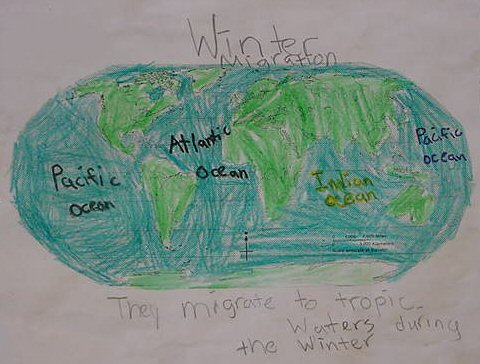 Winter
Migration
Atlantic
ocean
Pacific
ocean
Pacific
ocean
Indian
ocean
They migrate to tropic
Waters during
the Winter